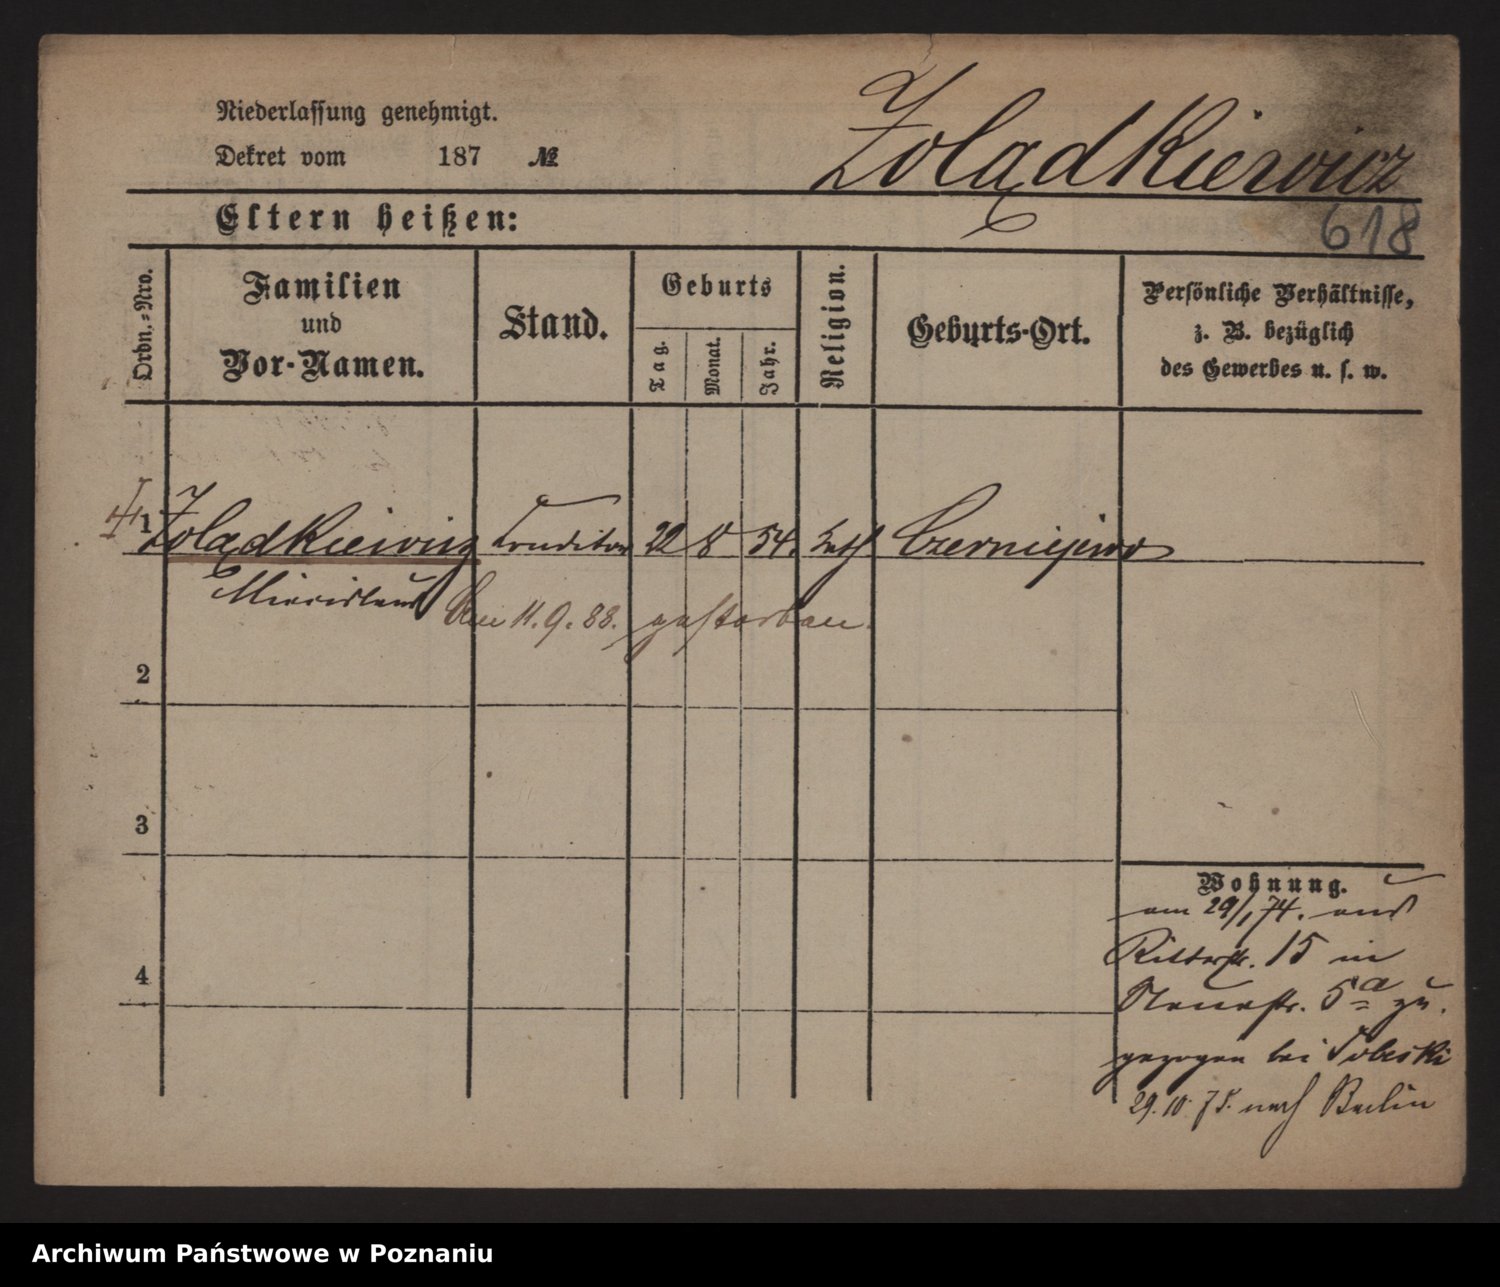 Niederlassung genehmigt.
Dekret vom 187 №
Zolądkiewicz
Eltern heißen:
618
Ordn.-Nro.
Familien
und
Vor-Namen.
Stand.
Geburts
Tag.
Monat.
Jahr.
Religion.
Geburts-Ort.
Persönliche Verhältnisse,
z. B. bezüglich
des Gewerbes u. s. w.
1 Zolądkiewicz Conditor 22 8 54. kath Czerniejewo
Miecislaus
Am 11. 9. 88. gestorben.
2
3
4
Wohnung.
am 29/1 74. aus
Ritterstr. 15 in
Neuestr. 5a zu.
gezogen bei Sobeski
29. 10. 75. nach Berlin
Archiwum Państwowe w Poznaniu